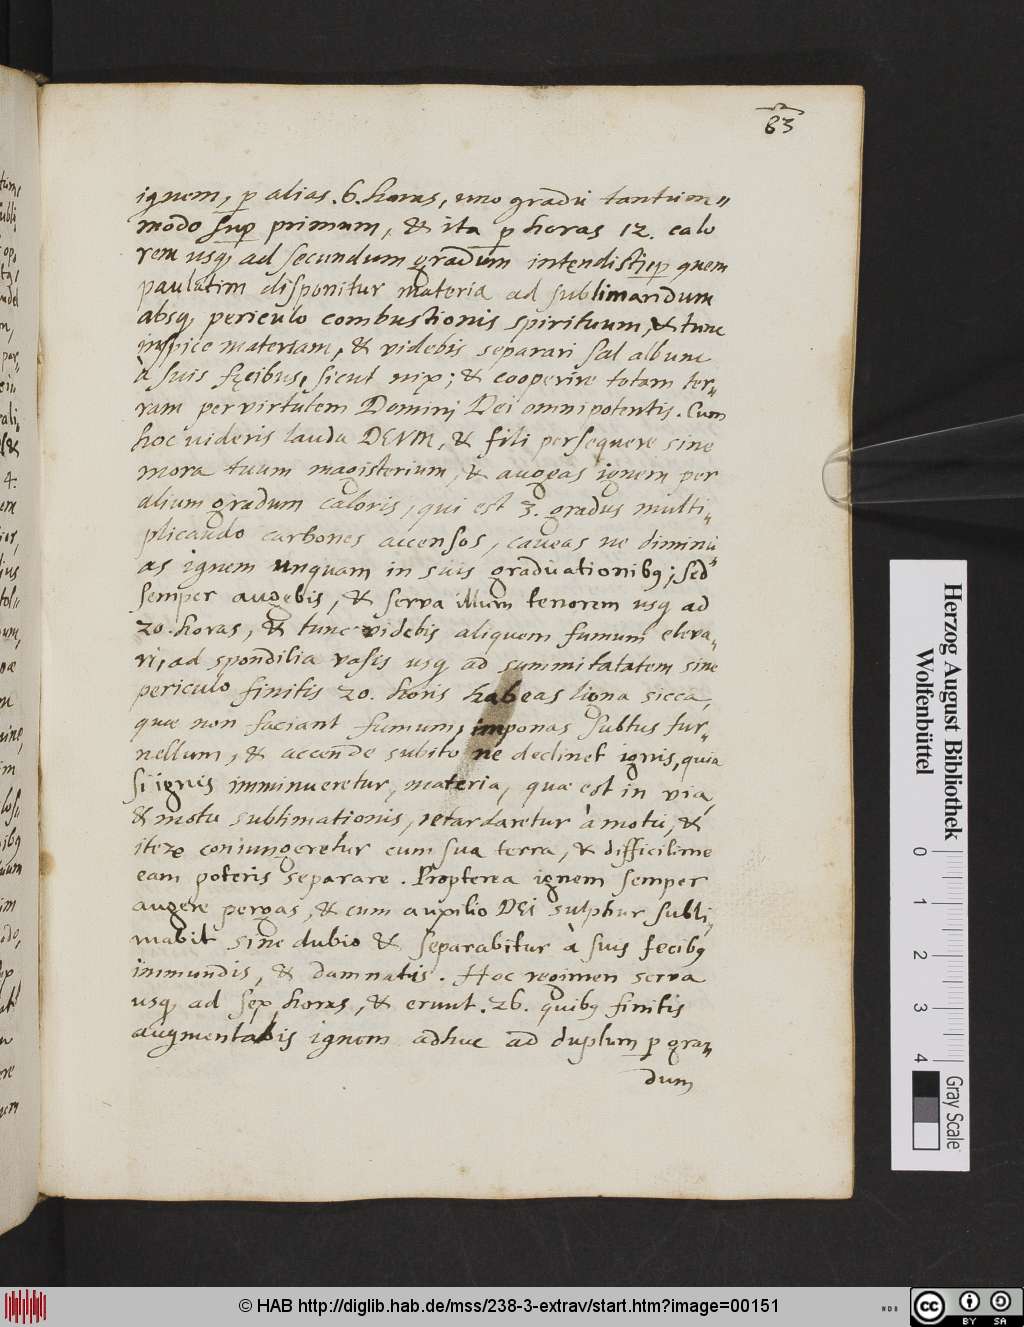 83
ignem, p alias .6. horas, uno gradu tantum=
modo sup primum, & ita p horas 12. calo
rem usq ad secundum gradum intendisti, p quem
paulatim disponitur materia ad sublimandum
absq periculo combustionis spirituum, & tunc
inspice materiam, & videbis separari sal album
à suis fęcibus, sicut nix; & cooperire totam ter=
ram per virtutem Dominj Dei omnipotentis. Cum
hoc uideris lauda DEVM, & fili persequere sine
mora tuum magisterium, & augeas ignem per
alium gradum caloris, qui est 3. gradus multi=
plicando carbones accensos, caveas ne diminu=
as ignem unquam in suis graduationibq; sed
semper augebis, & serva illum tenorem usq ad
20. horas, & tunc videbis aliquem fumum eleva=
ri, ad spondilia vasis usq ad summitatatem sine
periculo finitis 20. horis habeas ligna sicca,
quæ non faciant fumum, imponas subtus fur=
nellum, & accende subito ne declinet ignis, quia
si ignis imminueretur, materia, quæ est in via,
& motu sublimationis, retardaretur à motu, &
iterẹ coniungeretur cum sua terra, & difficilime
eam poteris separare. Propterea ignem semper
augere pergas, & cum auxilio DEI sulphur subli=
mabit sine dubio & separabitur à suis fecibq
inmundis, & damnatis. Hoc regimen serva
usq ad sex horas, & erunt .26. quibq finitis
augmentabis ignem adhuc ad duplum p gra=
dum
Herzog August Bibliothek
Wolfenbüttel
0 1 2 3 4
Gray Scale
© HAB http://diglib.hab.de/mss/238-3-extrav/start.htm?image=00151
cc BY SA